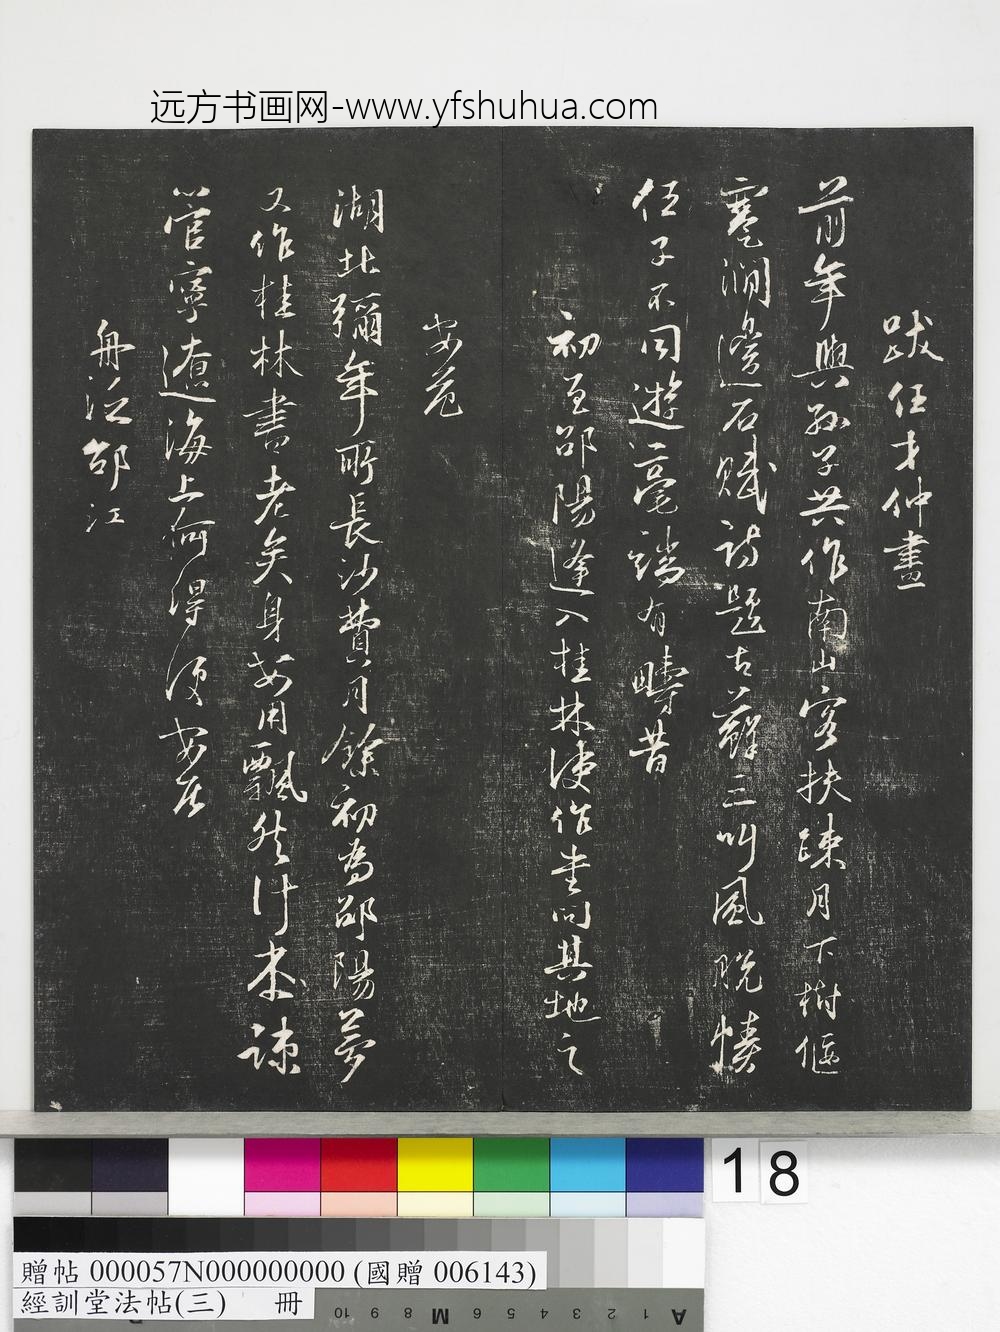 远方书画网-www.yfshuhua.com
跋任才仲畫
前年與孫子共作南山客扶疎月下樹偃
蹇澗邊石賦詩題古蘚三叫風脫幘
任子不同遊毫端有疇昔
初至邵陽逢入桂林使作書問其地之
安危
湖北彌年所長沙費月餘初為邵陽夢
又作桂林書老矣身安用飄然計本疎
管寧遼海上何得便安居
舟泛邵江
18
贈帖 000057N000000000 (國贈 006143)
經訓堂法帖(三) 冊
10 9 8 M 6 5 4 3 2 1 A